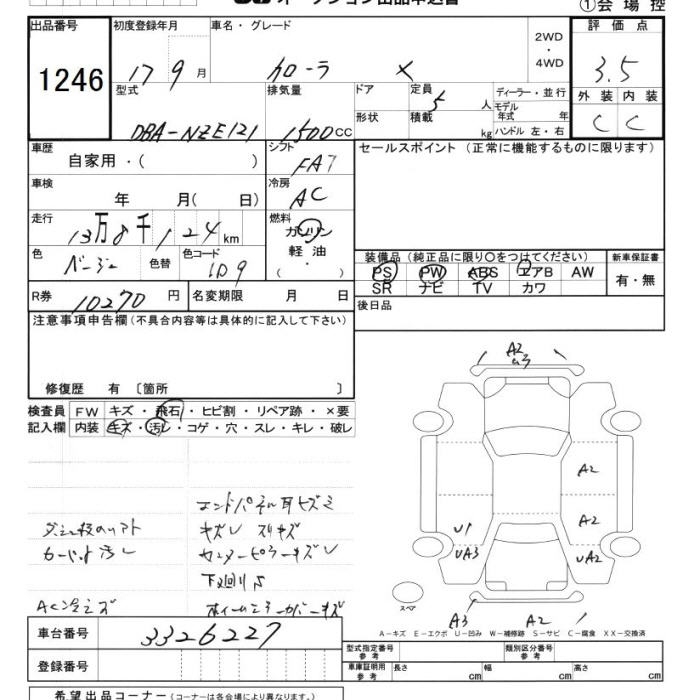 オークション出品申込書
①会場控
出品番号 初度登録年月 車名・グレード 2WD・4WD 評価点
1246 17 9月 カローラ X 3.5
型式 排気量 ドア 定員 5人 ディーラー・並行 外装 内装
モデル年式 年
DBA-NZE121 1500cc 形状 積載 kg ハンドル 左・右 C C
車歴 シフト セールスポイント (正常に機能するものに限ります)
自家用・( ) FAT
車検 冷房
年 月( 日) AC
走行 燃料
13万8千124km ガソリン
色 色替 色コード 軽油 装備品(純正品に限り○をつけてください) 新車保証書
ベージュ 1D9 ( ・ ) PS PW ABS エアB AW 有・無
SR ナビ TV カワ
R券 10270円 名変期限 月 日 後日品
注意事項申告欄(不具合内容等は具体的に記入して下さい)
修復歴 有 〔箇所 〕
検査員 FW キズ・飛石・ヒビ割・リペア跡・×要
記入欄 内装 キズ・汚レ・コゲ・穴・スレ・キレ・破レ
A2
A2
A2
U1
UA3
UA2
スペア
A3 A2
エンドパネル耳ヒズミ
キズU スリキズ
汚レ
センターピラーキズU
下廻りS
AC冷エズ
ホイールキズ
A-キズ E-エクボ U-凹み W-補修跡 S-サビ C-腐食 XX-交換済
車台番号 3326227
型式指定番号 参考 類別区分番号 参考
登録番号
車庫証明用 参考 長さ cm 幅 cm 高さ cm
希望出品コーナー(コーナーは各会場により異なります。)